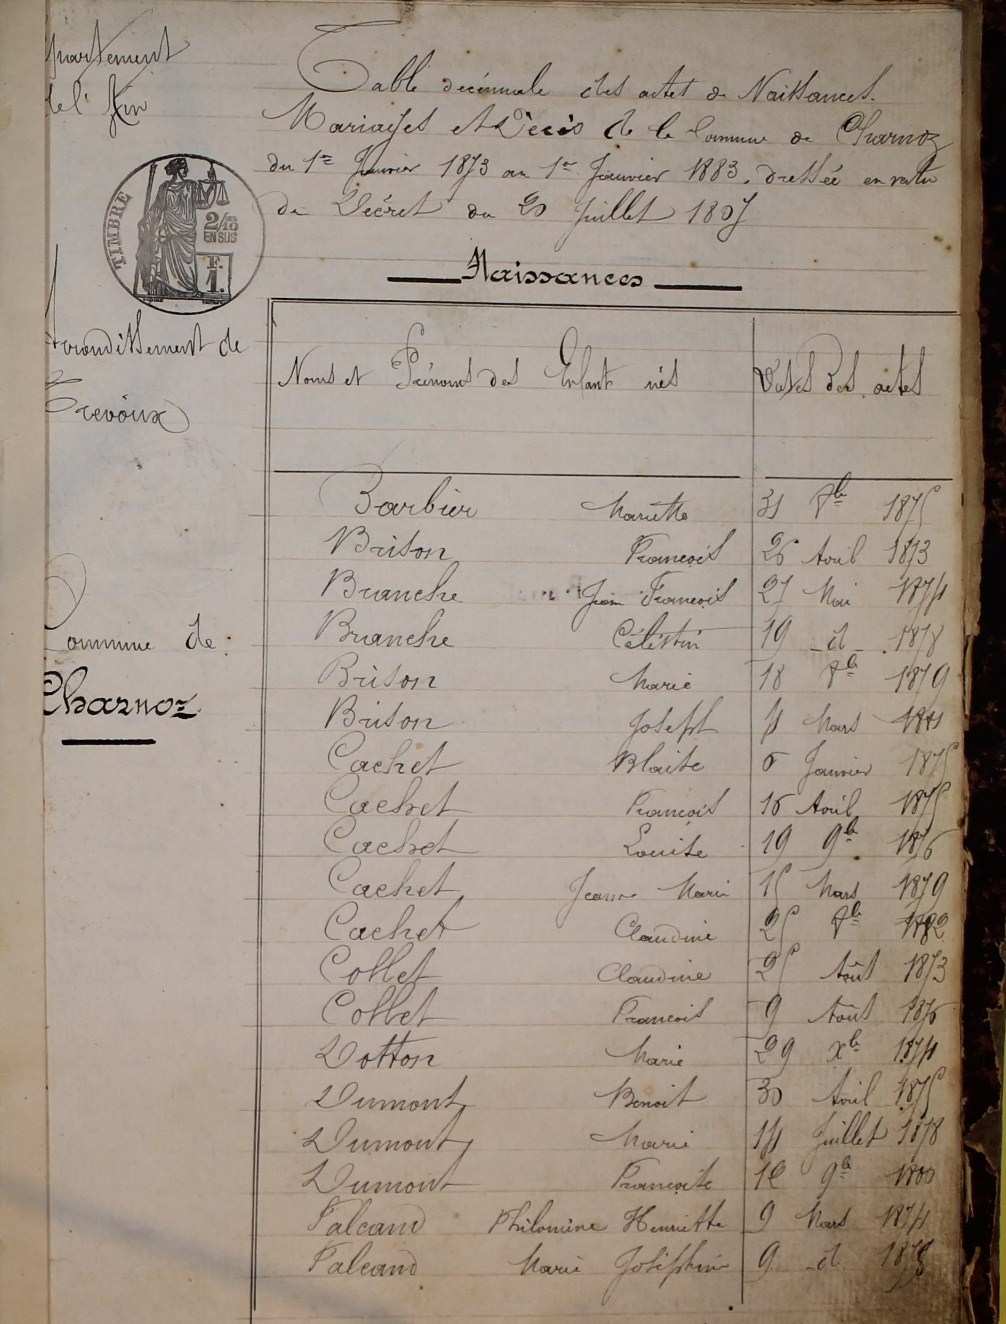 partement
de l'Ain
Table décennale des actes de Naissances.
Mariages et Décès de la Commune de Charnoz
du 1er Janvier 1873 au 1er Janvier 1883. dressée en vertu
du Décret du 20 Juillet 1807
TIMBRE
2/10
EN SUS
F.
1.
Naissances
Arrondissement de
Trevoux
Commune de
Charnoz
Noms et Prénoms des Enfant nés Dates des actes
Barbier Mariette 31 8bre 1875
Brison Francois 26 Avril 1873
Branche Jean Francois 27 Mai 1874
Branche Célestin 19 d 1878
Brison Marie 18 8bre 1879
Brison Joseph 4 Mars 1881
Cachet Blaise 6 Janvier 1875
Cachet Francois 16 Avril 1875
Cachet Louise 19 9bre 1876
Cachet Jeanne Marie 15 Mars 1879
Cachet Claudine 25 8bre 1882
Collet Claudine 25 Août 1873
Collet Francois 9 Août 1876
Dotton Marie 29 Xbre 1874
Dumont Benoit 30 Avril 1875
Dumont Marie 14 Juillet 1878
Dumont Francoise 12 9bre 1880
Falcand Philomène Henriette 9 Mars 1874
Falcand Marie Joséphine 9 d